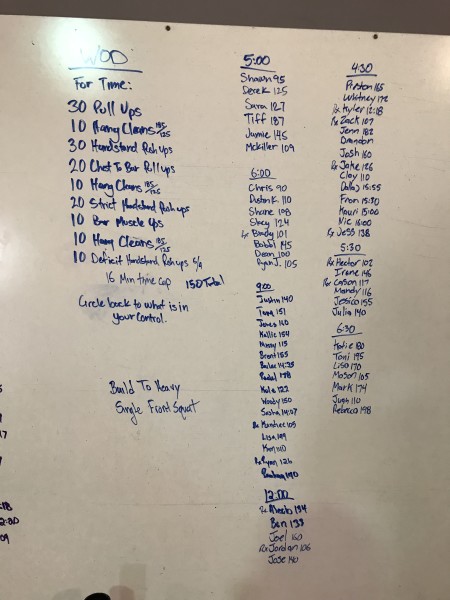 WOD
For Time:
30 Pull Ups
10 Hang Cleans 185/125
30 Handstand Push ups
20 Chest To Bar Pull ups
10 Hang Cleans 185/125
20 Strict Handstand Push ups
10 Bar Muscle Ups
10 Hang Cleans 185/125
10 Deficit Handstand Push ups
16 Min time Cap 150 Total
Circle back to what is in
your control.
Build To Heavy
Single Front Squat
5:00
Shawn 95
Derek 125
Sara 127
Tiff 187
Jamie 145
Mckiller 109
6:00
Chris 90
Dustin K. 110
Shane 198
Stacy 124
Brady 101
Bobbi 145
Dean 100
Ryan J. 105
9:00
Justin 140
Tara 151
James 110
Hallie 154
Missy 115
Brent 155
14:25
178
Kate 122
Woody 150
Sasha 14:07
Rx 105
Lisa 109
Kim 110
Rx Ryan 126
190
12:00
Rx 134
Ben 133
Joel 150
Rx Jordan 106
Jose 140
4:30
Preston 165
Whitney 172
Rx Kyler 12:18
Rx Zack 107
Jenn 182
Brandon
Josh 160
Rx Jake 126
Clay 110
15:55
Fran 15:30
Mauri 15:00
Nic 16:00
Jess 138
5:30
Rx Hector 102
Irene 146
Rx Carson 117
Mandy 116
Jessica 155
Julia 140
6:30
Katie 180
Toni 195
Lisa 170
Mason 105
Mark 174
Josh 110
Rebecca 198